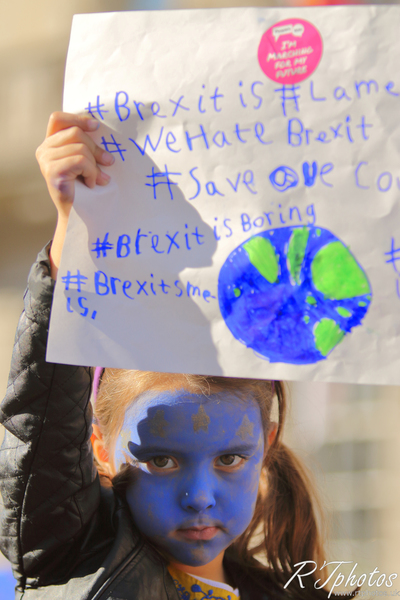 I'M
MARCHING
FOR MY
FUTURE
#Brexit is #Lame
#WeHate Brexit
#Save Our Cou
#Brexit is Boring
#Brexitsme
is,
#
R'Tphotos